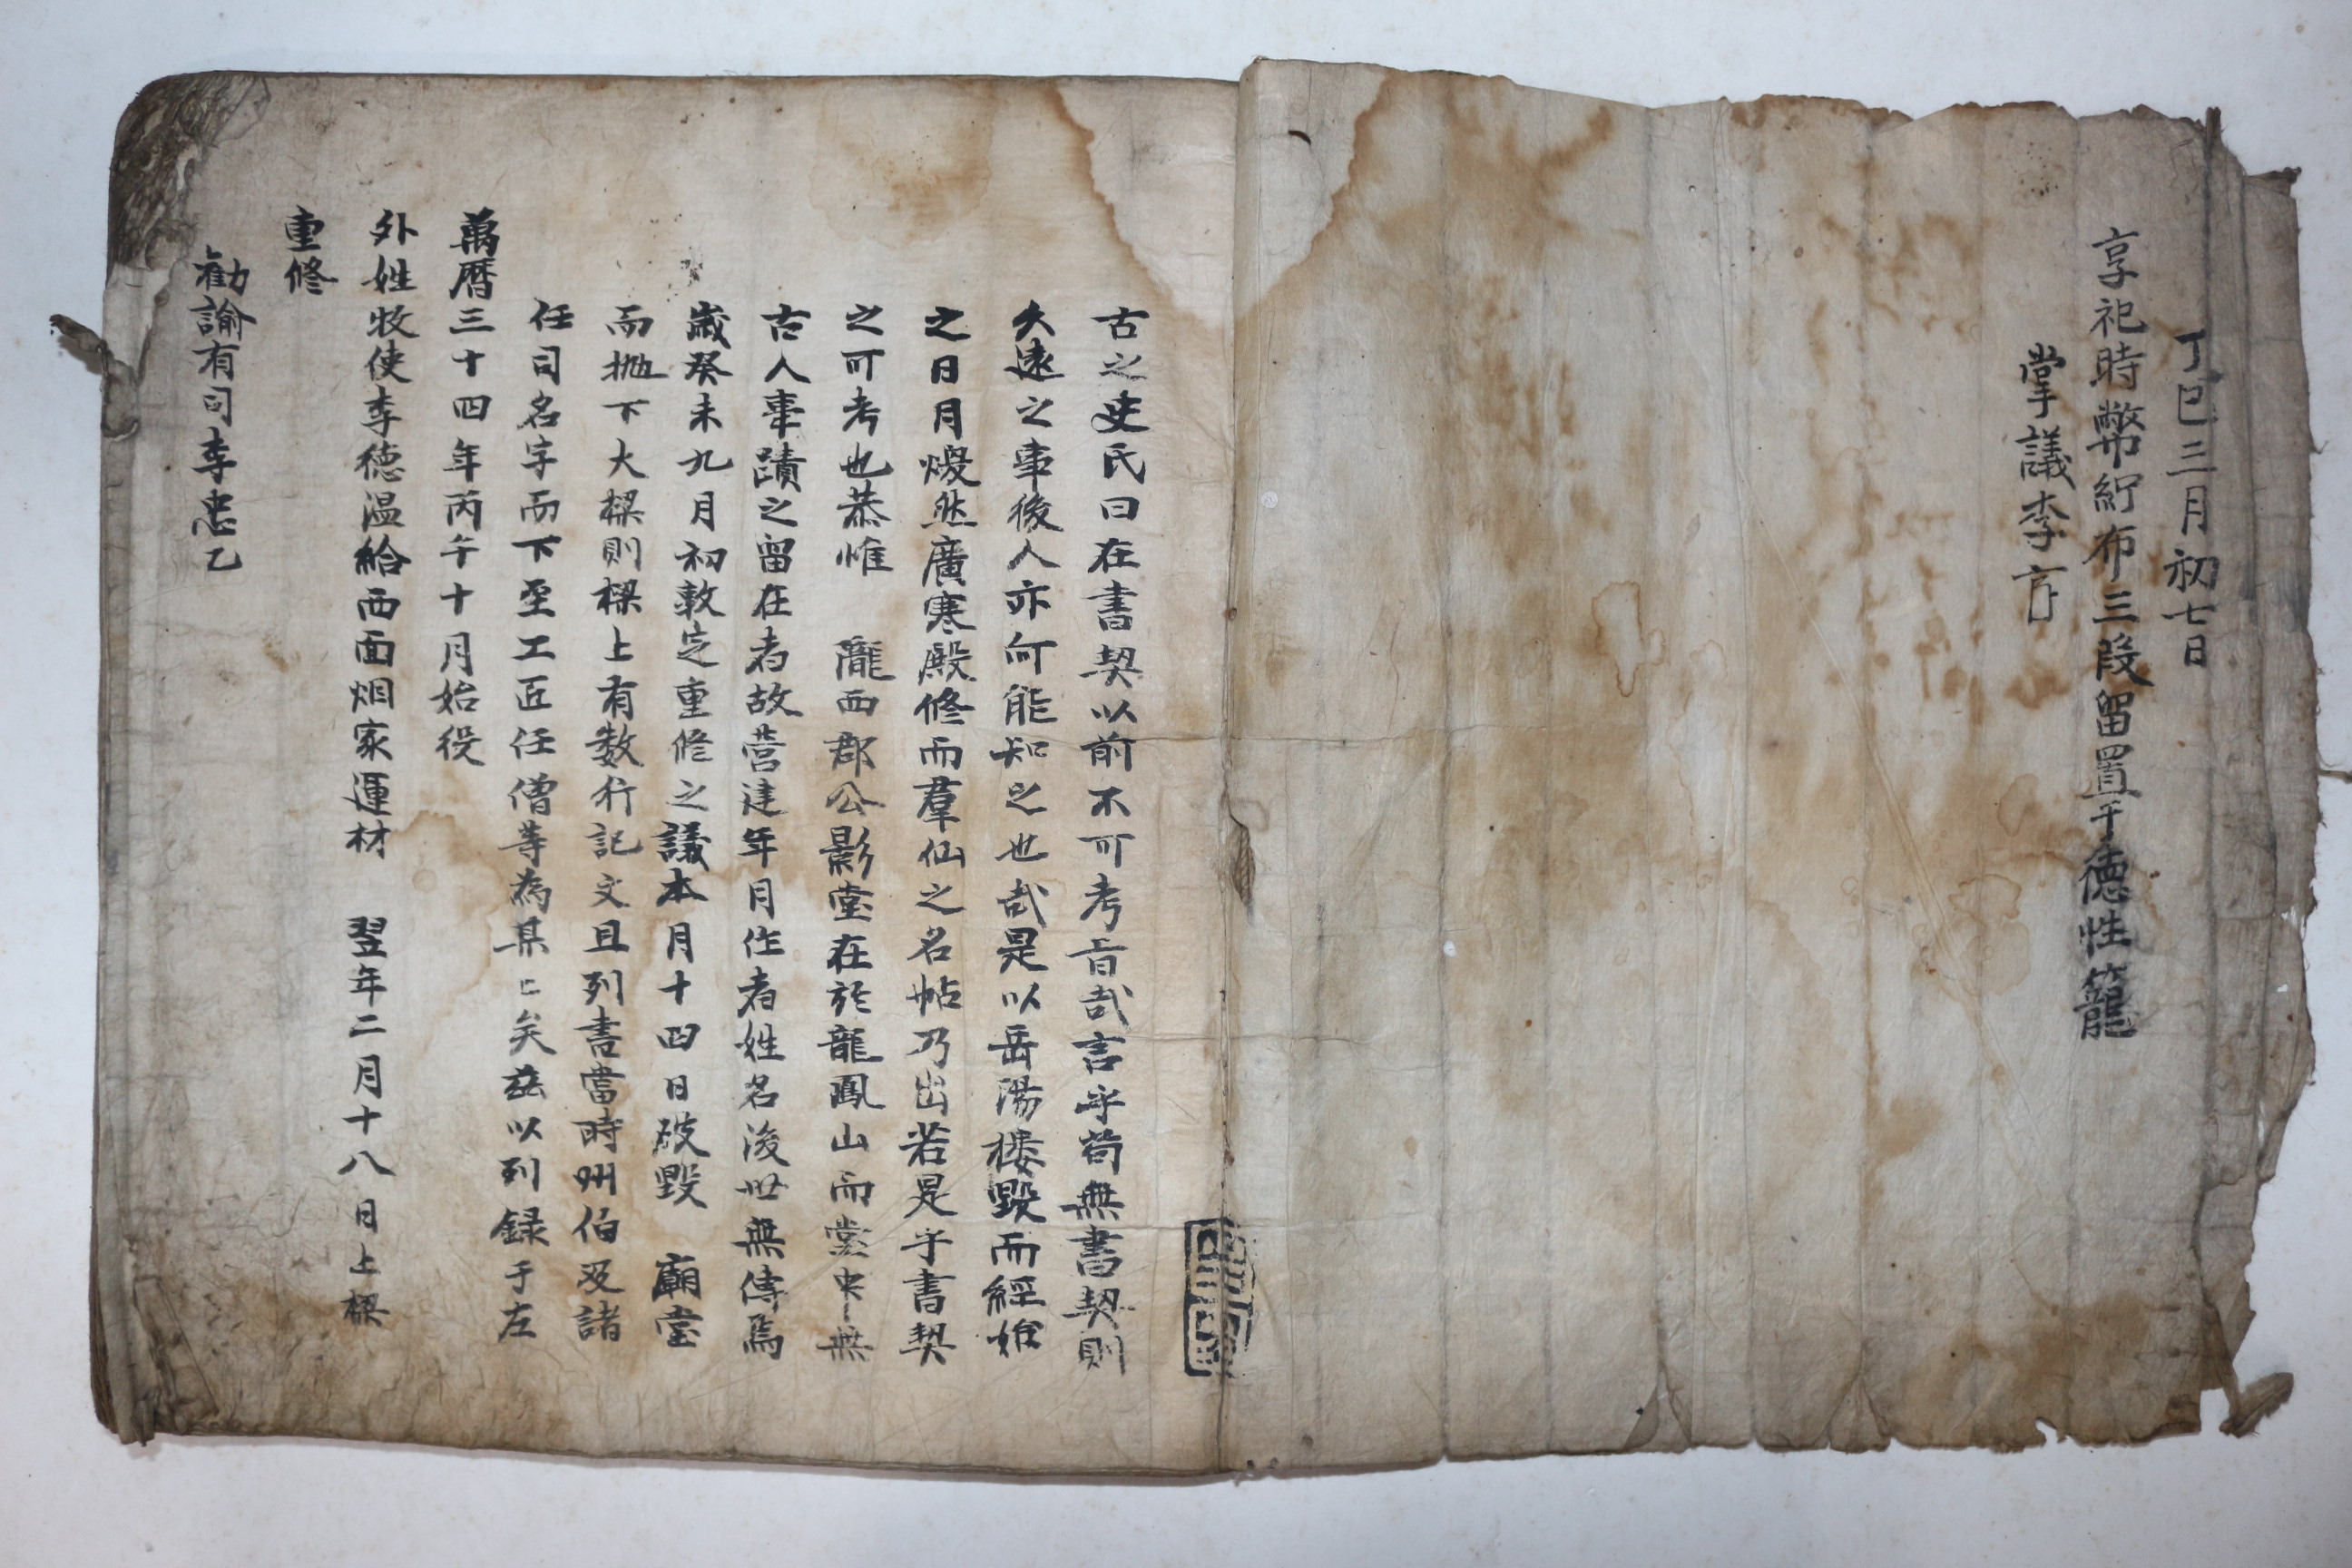 丁巳三月初七日
享祀時幣紵布三段留置于德性籠
掌議李
古之史氏曰在書契以前不可考旨哉言乎苟無書契則
久遠之事後人亦何能知之也哉是以岳陽樓毀而經始
之日月煥然廣寒殿修而羣仙之名帖乃出若是乎書契
之可考也恭惟 隴西郡公影堂在於龍鳳山而堂中無
古人事蹟之留在者故營建年月任者姓名後世無傳焉
歲癸未九月初敦定重修之議本月十四日破毀 廟堂
而抛下大樑則樑上有數行記文且列書當時州伯及諸
任司名字而下至工匠任僧等為某〻矣茲以列錄于左
萬曆三十四年丙午十月始役
外姓牧使李德溫給西面烟家運材 翌年二月十八日上樑
重修
勸諭有司李忠乙